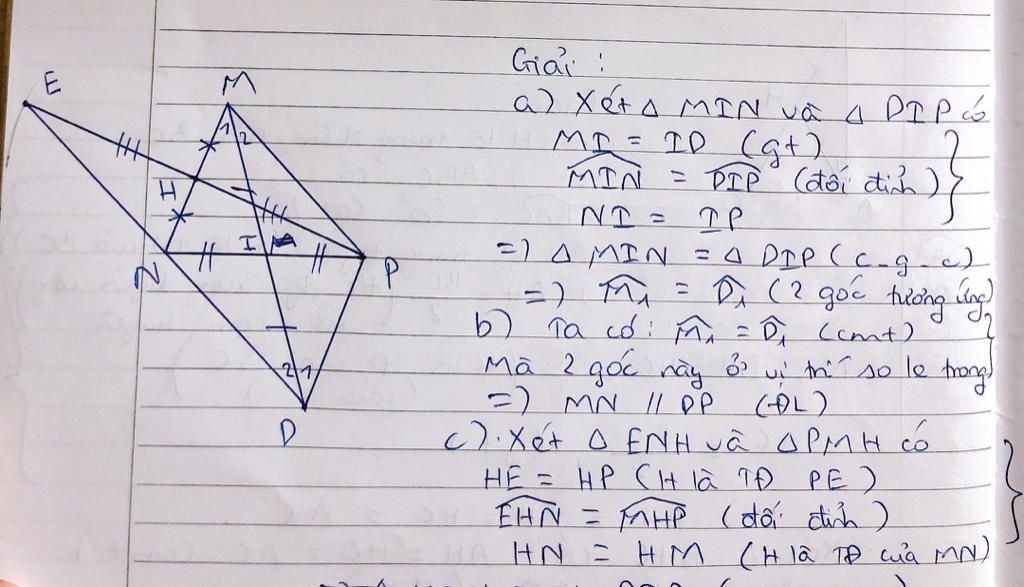 Giải :
a) Xét Δ MIN và Δ DIP có
MI = ID (gt)
\widehat{MIN} = \widehat{DIP} (đối đỉnh)
NI = IP
=) Δ MIN = Δ DIP (c-g-c)
=) \widehat{M_1} = \widehat{D_1} (2 góc tương ứng)
b) Ta có : \widehat{M_1} = \widehat{D_1} (cmt)
Mà 2 góc này ở vị trí so le trong
=) MN // DP (ĐL)
c). Xét Δ ENH và Δ PMH có
HE = HP (H là TĐ PE)
\widehat{EHN} = \widehat{MHP} (đối đỉnh)
HN = HM (H là TĐ của MN)
E
M
1 2
H
I
N
P
2 1
D